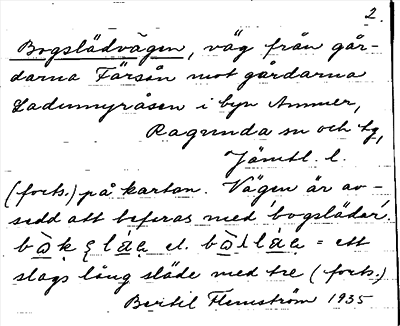 2.
Bogslädvägen, väg från går-
darna Färsån mot gårdarna
Ladumyråsen i byn Ammer,
Ragunda sn och tg,
Jämtl. l.
(forts.) på kartan. Vägen är av-
sedd att beforas med 'bogslädar',
el. = ett
slags lång släde med tre (forts.)
Bertil Flemström 1935